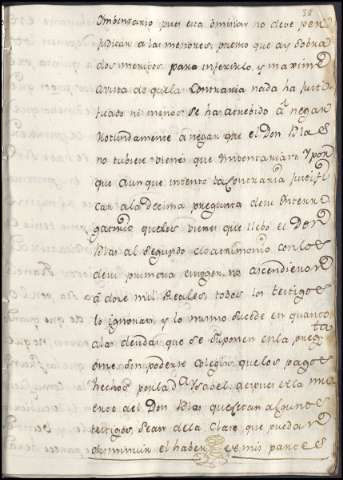 Imbentario pues esta omision no deve per
judicar a la menores, puesto que ay sobra
dos meritos para inferirlo, y maxime
a vista de que la Contraria nada ha justi
ficado ni menos se ha atrebido a negar
Rotundamente a negar que el Don Blas
no tubiese vienes que Imbentariar: Y por
que aunque intento la Contraria justifi
car a la decima pregunta de su Interr
gatorio que los vienes que llebo el Don
Blas al segundo Matrimonio con los
de su primera muger, no ascendieron
a doze mil Reales, todos los testigos
lo ignoran, y lo mismo sucede en quanto
a las deudas que se suponen en la pregta
onze sin poderse colegir que los pagos
hechos por la Da Ysabel, despues de la mu
erte del Don Blas que sean algunos
testigos sean de la Clase que puedan
disminuir el haber de mis partes